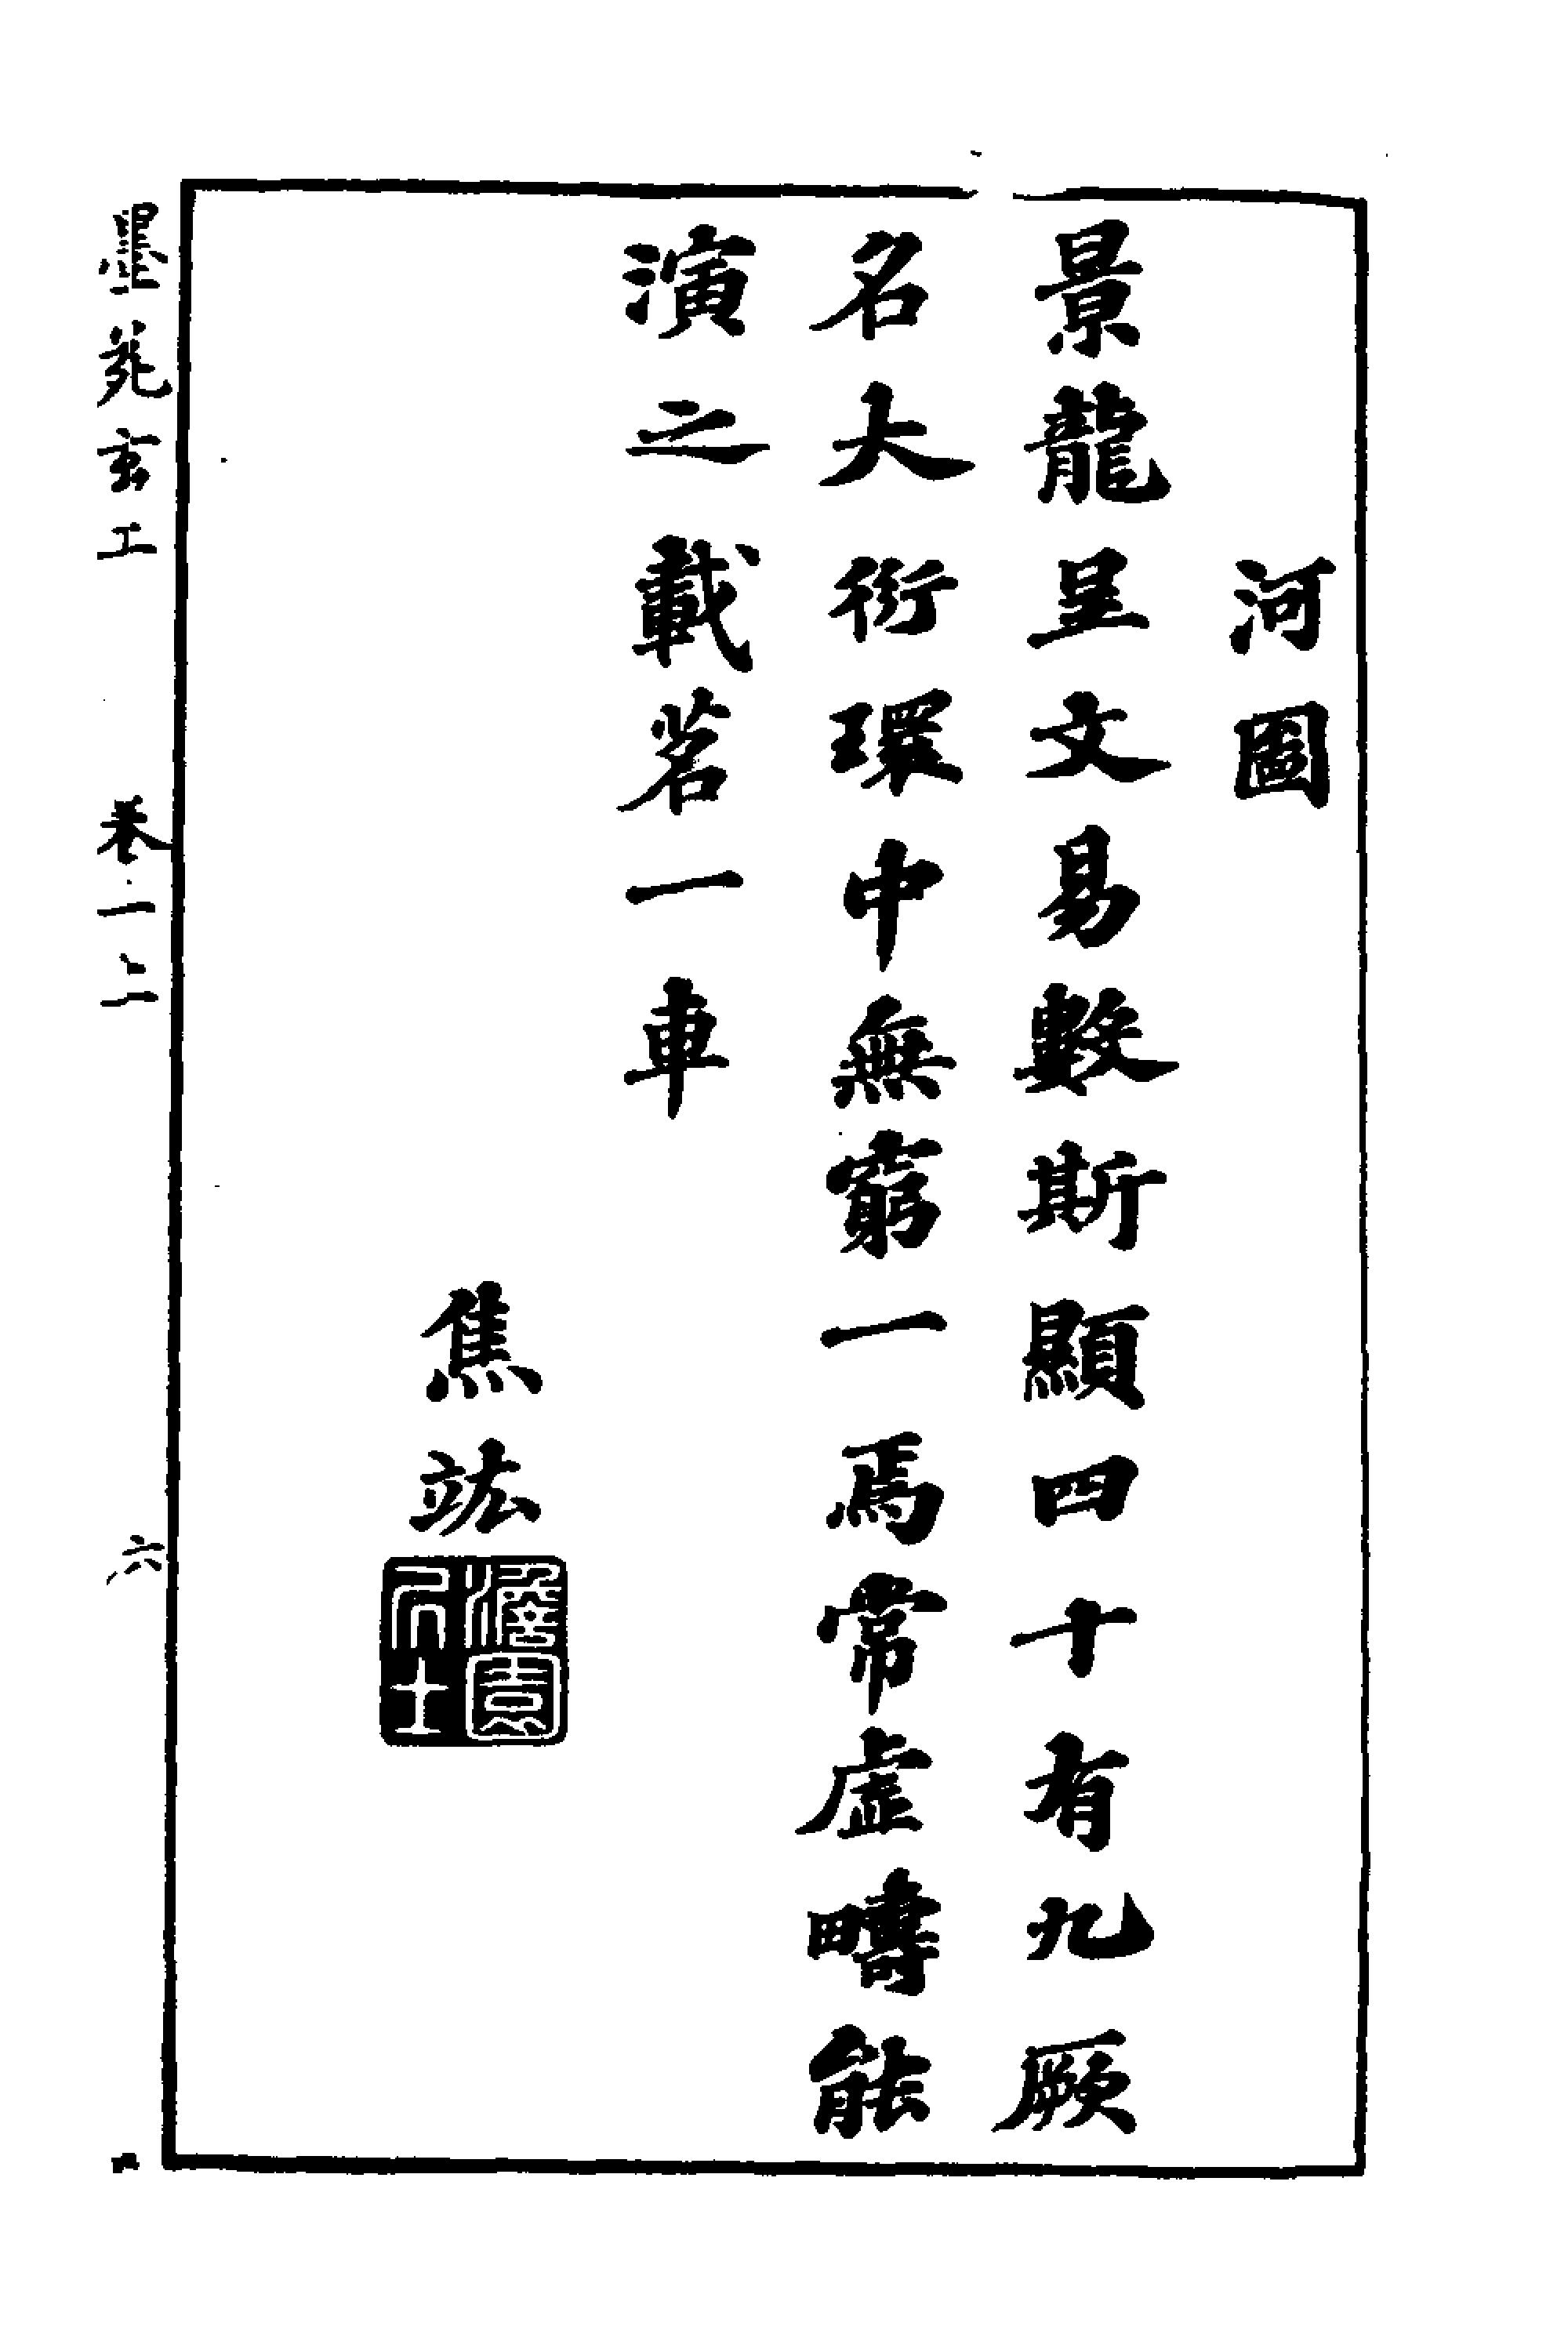 河圖
景龍呈文易數斯顯四十有九厥
名大衍環中無窮一焉常虛疇能
演之載茗一車
焦竑
澹園
居士
墨苑玄工
卷一
六